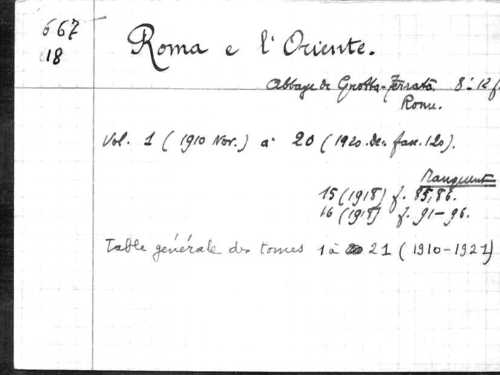 667
18
Roma e l'Oriente.
Abbaye de Grotta-Ferrata. 8: 12 f
Rome.
Vol. 1 (1910 Nov.) à 20 (1920. Dec. fasc. 120).
Manquent
15 (1918) f. 85, 86.
16 (1918) f. 91-96.
Table générale des tomes 1 à 21 (1910-1921)